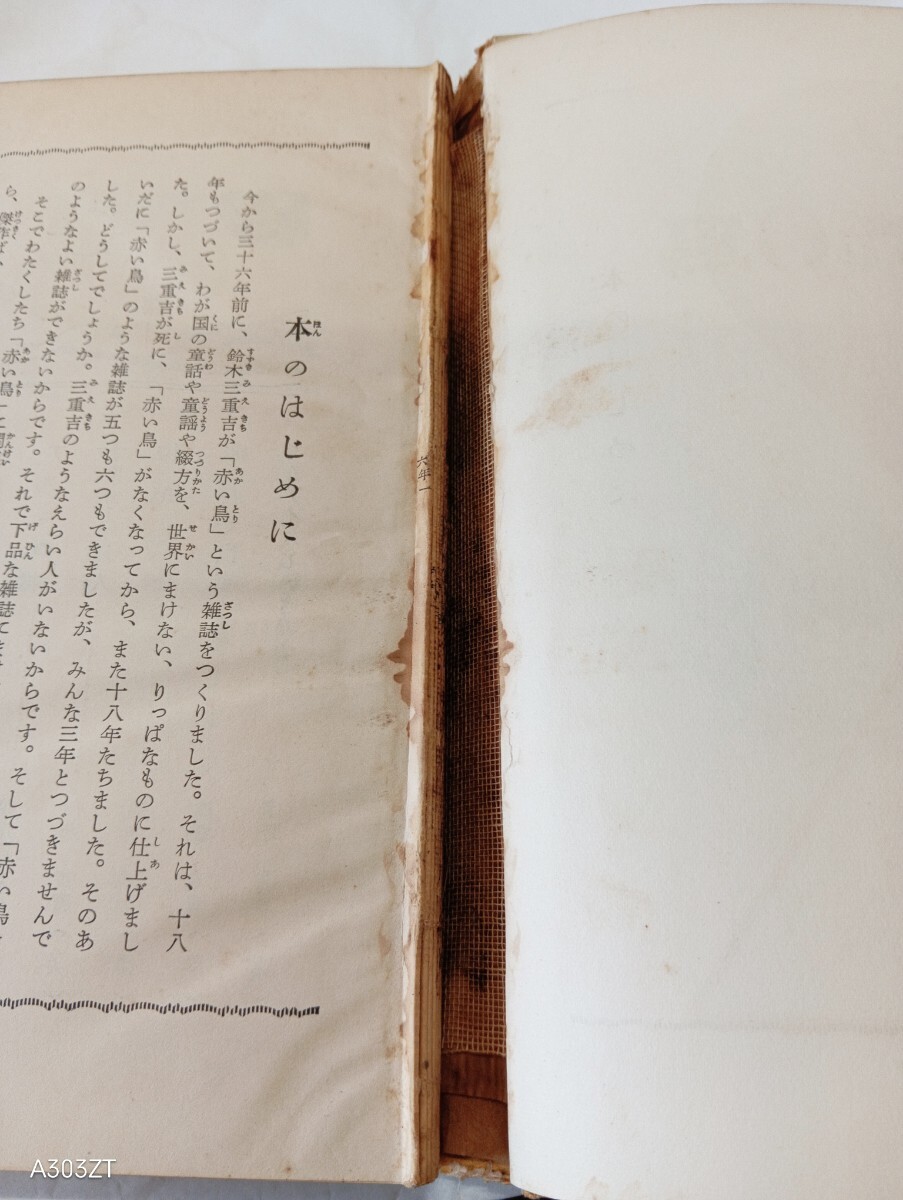 本のはじめに
今から三十六年前に、鈴木三重吉が「赤い鳥」という雑誌をつくりました。それは、十八
年もつづいて、わが国の童話や童謡や綴方を、世界にまけない、りっぱなものに仕上げまし
た。しかし、三重吉が死に、「赤い鳥」がなくなってから、また十八年たちました。そのあ
いだに「赤い鳥」のような雑誌が五つも六つもできましたが、みんな三年とつづきませんで
した。どうしてでしょうか。三重吉のようなえらい人がいないからです。そして「赤い鳥」
のようなよい雑誌ができないからです。それで下品な雑誌
そこでわたくしたち「赤い鳥」に関
ら、傑作
六年一
A303ZT